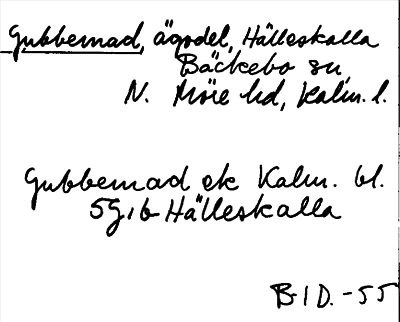 Gubbemad, ägodel, Hälleskalla
Bäckebo sn,
N. Möre hd, Kalm. l.
Gubbemad ek Kalm. bl.
5G, b Hälleskalla
B I D. - 55